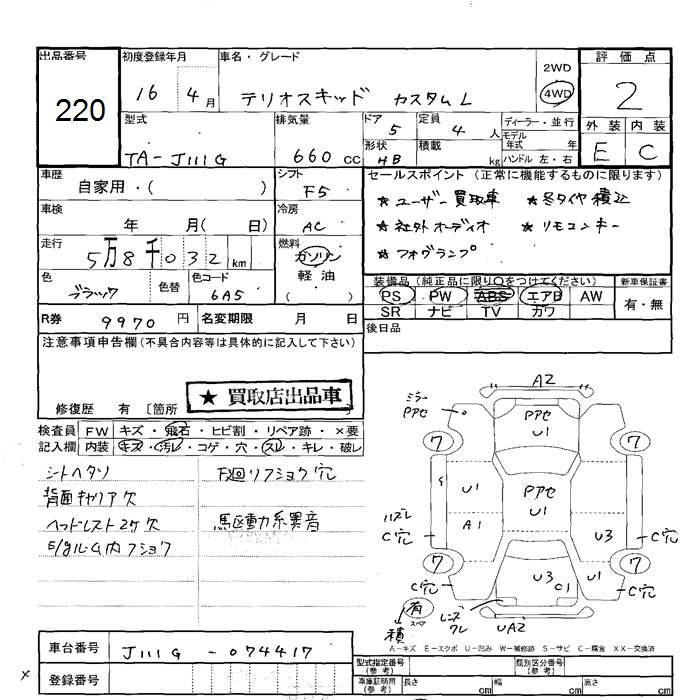 出品番号 初度登録年月 車名・グレード 評価点
220 16 4月 テリオスキッド カスタムL 2WD 4WD 2
型式 排気量 ドア 定員 ディーラー・並行 外装 内装
TA-J111G 660cc 5 4人 モデル年式 年 E C
形状 HB 積載 kg ハンドル 左・右
車歴 シフト セールスポイント(正常に機能するものに限ります)
自家用・( ) F5 ★ユーザー買取車 ★冬タイヤ積込
車検 冷房 ★社外オーディオ ★リモコンキー
年 月( 日) AC ★フォグランプ
走行 燃料
5万8千032km ガソリン 軽油 ( )
色 色替 色コード 装備品(純正品に限り○をつけてください) 新車保証書
ブラック 6A5 PS PW ABS エアB AW 有・無
SR ナビ TV カワ
R券 9970円 名変期限 月 日 後日品
注意事項申告欄(不具合内容等は具体的に記入して下さい)
★買取店出品車
修復歴 有 〔箇所
検査員 FW キズ・飛石・ヒビ割・リペア跡・×要
記入欄 内装 キズ・汚レ・コゲ・穴・スレ・キレ・破レ
シートヘタリ 下廻リフショク穴
背面キャリア欠
ヘッドレスト2ケ欠 駆動系異音
E/gルーム内フショク
A2
ミラー
Pアセ
Pアセ
U1
7 7
U1 Pアセ
U1
ハズレ
C穴 A1 U3 C穴
7 7
C穴 U3 C1 U1 C穴
有 スペア
積
レンズワレ
UA2
A-キズ E-エクボ U-凹み W-補修跡 S-サビ C-腐食 XX-交換済
車台番号 J111G-074417
型式指定番号(参考) 類別区分番号(参考)
× 登録番号
車庫証明用(参考) 長さ cm 幅 cm 高さ cm